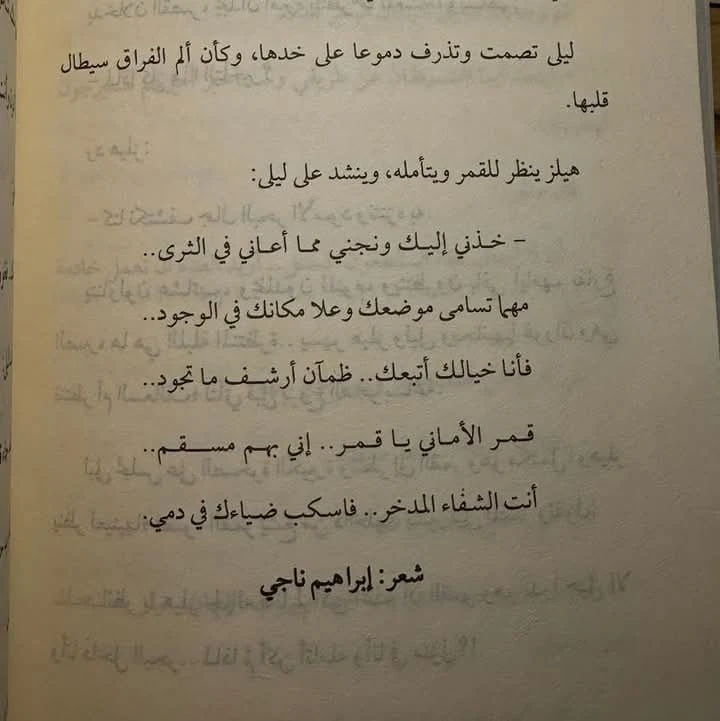 ليلى تصمت وتذرف دموعا على خدها، وكأن ألم الفراق سيطال
قلبها.
هيلز ينظر للقمر ويتأمله، وينشد على ليلى:
- خذني إليك ونجني مما أعاني في الثرى..
مهما تسامى موضعك وعلا مكانك في الوجود..
فأنا خيالك أتبعك.. ظمآن أرشف ما تجود..
قمر الأماني يا قمر.. إني بهم مسقم..
أنت الشفاء المدخر.. فاسكب ضياءك في دمي.
شعر: إبراهيم ناجي